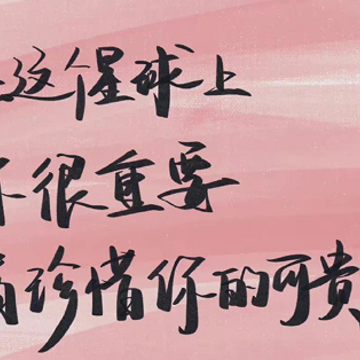 这个星球上
很重要
珍惜你的可贵